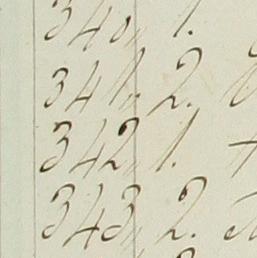 340, 1.
341. 2.
342, 1.
343, 2.